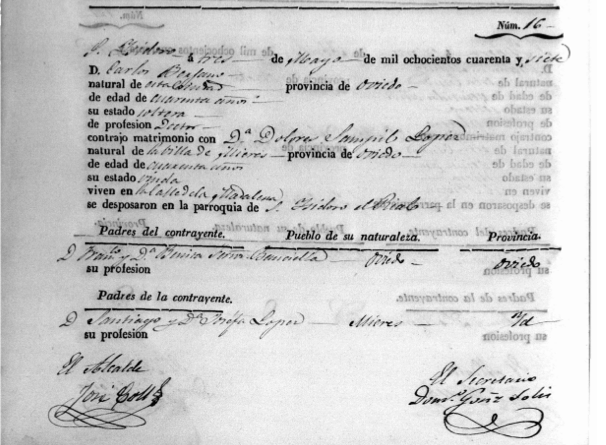 Núm. 16
S. Isidoro á tres de Mayo de mil ochocientos cuarenta y siete
D. Carlos
natural de esta Ciudad provincia de Oviedo
de edad de cuarenta años
su estado soltero
de profesion
contrajo matrimonio con Dª Dolores Lopez
natural de la Villa de Mieres provincia de Oviedo
de edad de cuarenta años
su estado viuda
viven en la Calle de la Madalena
se desposaron en la parroquia de S. Isidoro el Real
Padres del contrayente. Pueblo de su naturaleza. Provincia.
D Franco y Dª Benita Oviedo Oviedo
su profesion
Padres de la contrayente.
D Santiago y Dª Lopez Mieres Yd
su profesion
El Alcalde
José
El Secretario
Solis